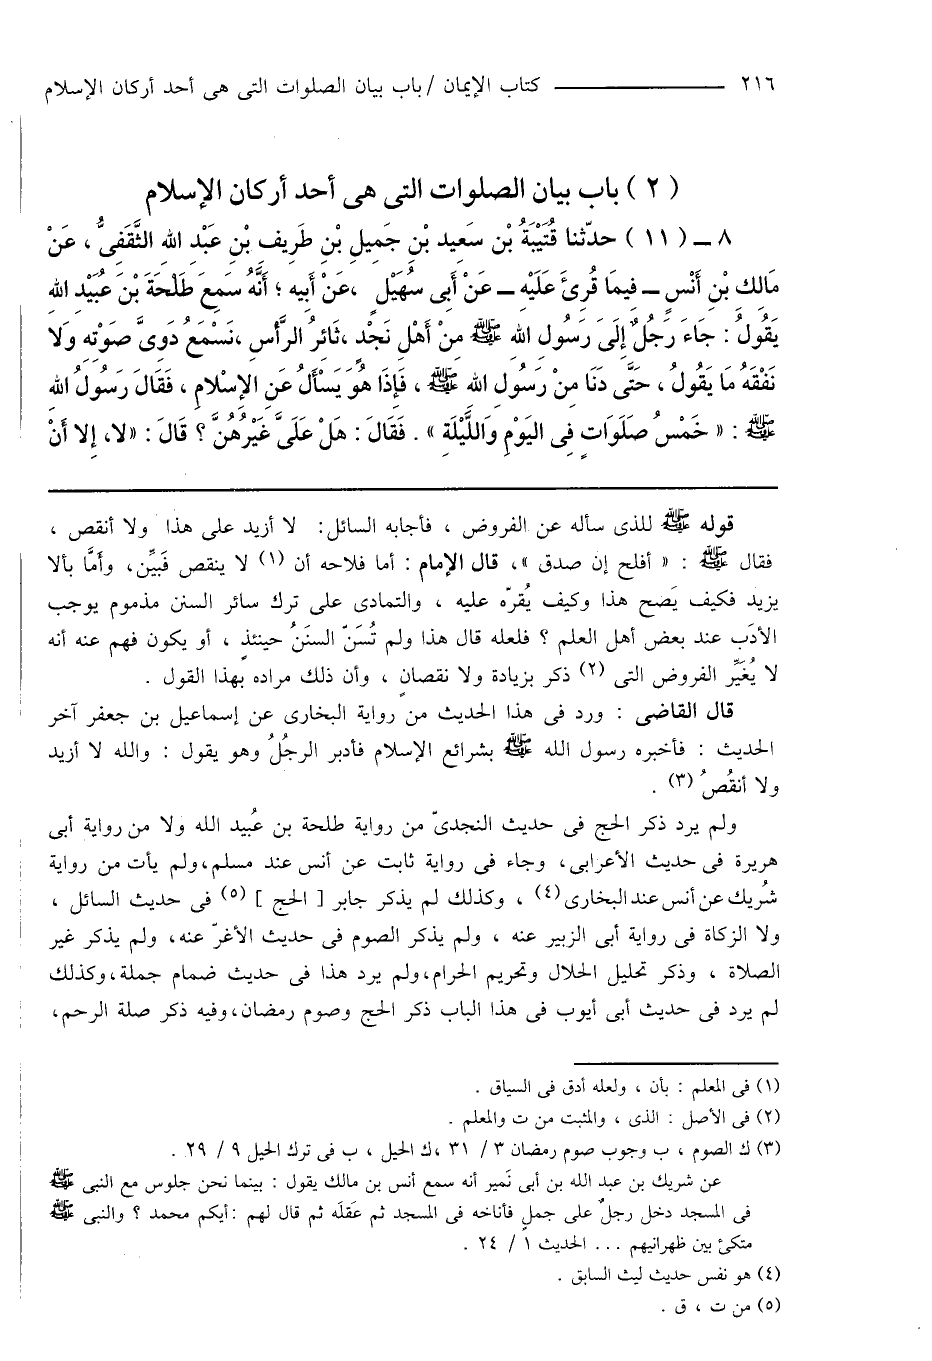 ٢١٦ ــــــــــــ كتاب الإيمان / باب بيان الصلوات التى هى أحد أركان الإسلام
( ٢ ) باب بيان الصلوات التى هى أحد أركان الإسلام
٨ ــ ( ١١ ) حدّثنا قُتَيْبَةُ بْن سَعيد بْنِ جَميل بْن طَريف بْنِ عَبْد الله الثَّقَفىُّ ، عَنْ
مَالك بْنِ أَنْسٍ ــ فيمَا قُرِئَ عَلَيْهِ ــ عَنْ أَبى سُهَيْلٍ ، عَنْ أَبيه ؛ أَنَّهُ سَمِعَ طَلْحَةَ بْنَ عُبَيْد الله
يَقُولُ : جَاءَ رَجُلٌ إلَى رَسُول الله ﷺ منْ أَهْل نَجْدٍ ، ثَائرُ الرَّأس ، نَسْمَعُ دَوىَّ صَوْته وَلَا
نَفْقَهُ مَا يَقُولُ ، حَتَّى دَنَا منْ رَسُول الله ﷺ ، فَإذَا هُوَ يَسْأَلُ عَن الإسْلَام ، فَقَالَ رَسُولُ الله
ﷺ : « خَمْسُ صَلَوَاتٍ فِى اليَوْمِ وَاللَّيْلَةِ » . فَقَالَ : هَلْ عَلَىَّ غَيْرُهُنَّ ؟ قَالَ : «لا، إلا أَنْ
قوله ﷺ للذى سأله عن الفروض ، فأجابه السائل : لا أزيد على هذا ولا أنقص ،
فقال ﷺ : « أفلح إن صدق »، قال الإمام : أما فلاحه أن (١) لا ينقص فَبيِّن، وأمَّا بألا
يزيد فكيف يَصح هذا وكيف يُقرّه عليه ، والتمادى على ترك سائر السنن مذموم يوجب
الأدَب عند بعض أهل العلم ؟ فلعله قال هذا ولم تُسَنّ السنَنُ حينئذٍ ، أو يكون فهم عنه أنه
لا يُغَيِّر الفروض التى (٢) ذكر بزيادة ولا نقصانٍ ، وأن ذلك مراده بهذا القول .
قال القاضى : ورد فى هذا الحديث من رواية البخارى عن إسماعيل بن جعفر آخر
الحديث : فأخبره رسول الله ﷺ بشرائع الإسلام فأدبر الرجلُ وهو يقول : والله لا أزيد
ولا أنقُصُ (٣) .
ولم يرد ذكر الحج فى حديث النجدىّ من رواية طلحة بن عُبيد الله ولا من رواية أبى
هريرة فى حديث الأعرابى، وجاء فى رواية ثابت عن أنس عند مسلم، ولم يأت من رواية
شُريك عن أنس عند البخارى (٤) ، وكذلك لم يذكر جابر [ الحج ] (٥) فى حديث السائل ،
ولا الزكاة فى رواية أبى الزبير عنه ، ولم يذكر الصوم فى حديث الأغرّ عنه، ولم يذكر غير
الصلاة ، وذكر تحليل الحلال وتحريم الحرام، ولم يرد هذا فى حديث ضمام جملة، وكذلك
لم يرد فى حديث أبى أيوب فى هذا الباب ذكر الحج وصوم رمضان، وفيه ذكر صلة الرحم،
(١) فى المعلم : بأن ، ولعله أدق فى السياق .
(٢) فى الأصل : الذى ، والمثبت من ت والمعلم .
(٣) ك الصوم ، ب وجوب صوم رمضان ٣ / ٣١ ، ك الحيل ، ب فى ترك الحيل ٩ / ٢٩ .
عن شريك بن عبد الله بن أبى نَمير أنه سمع أنس بن مالك يقول : بينما نحن جلوس مع النبى ﷺ
فى المسجد دخل رجلٌ على جملٍ فأناخه فى المسجد ثم عَقلَه ثم قال لهم : أيكم محمد ؟ والنبى ﷺ
متكئ بين ظهرانيهم ... الحديث ١ / ٢٤ .
(٤) هو نفس حديث ليث السابق .
(٥) من ت ، ق .